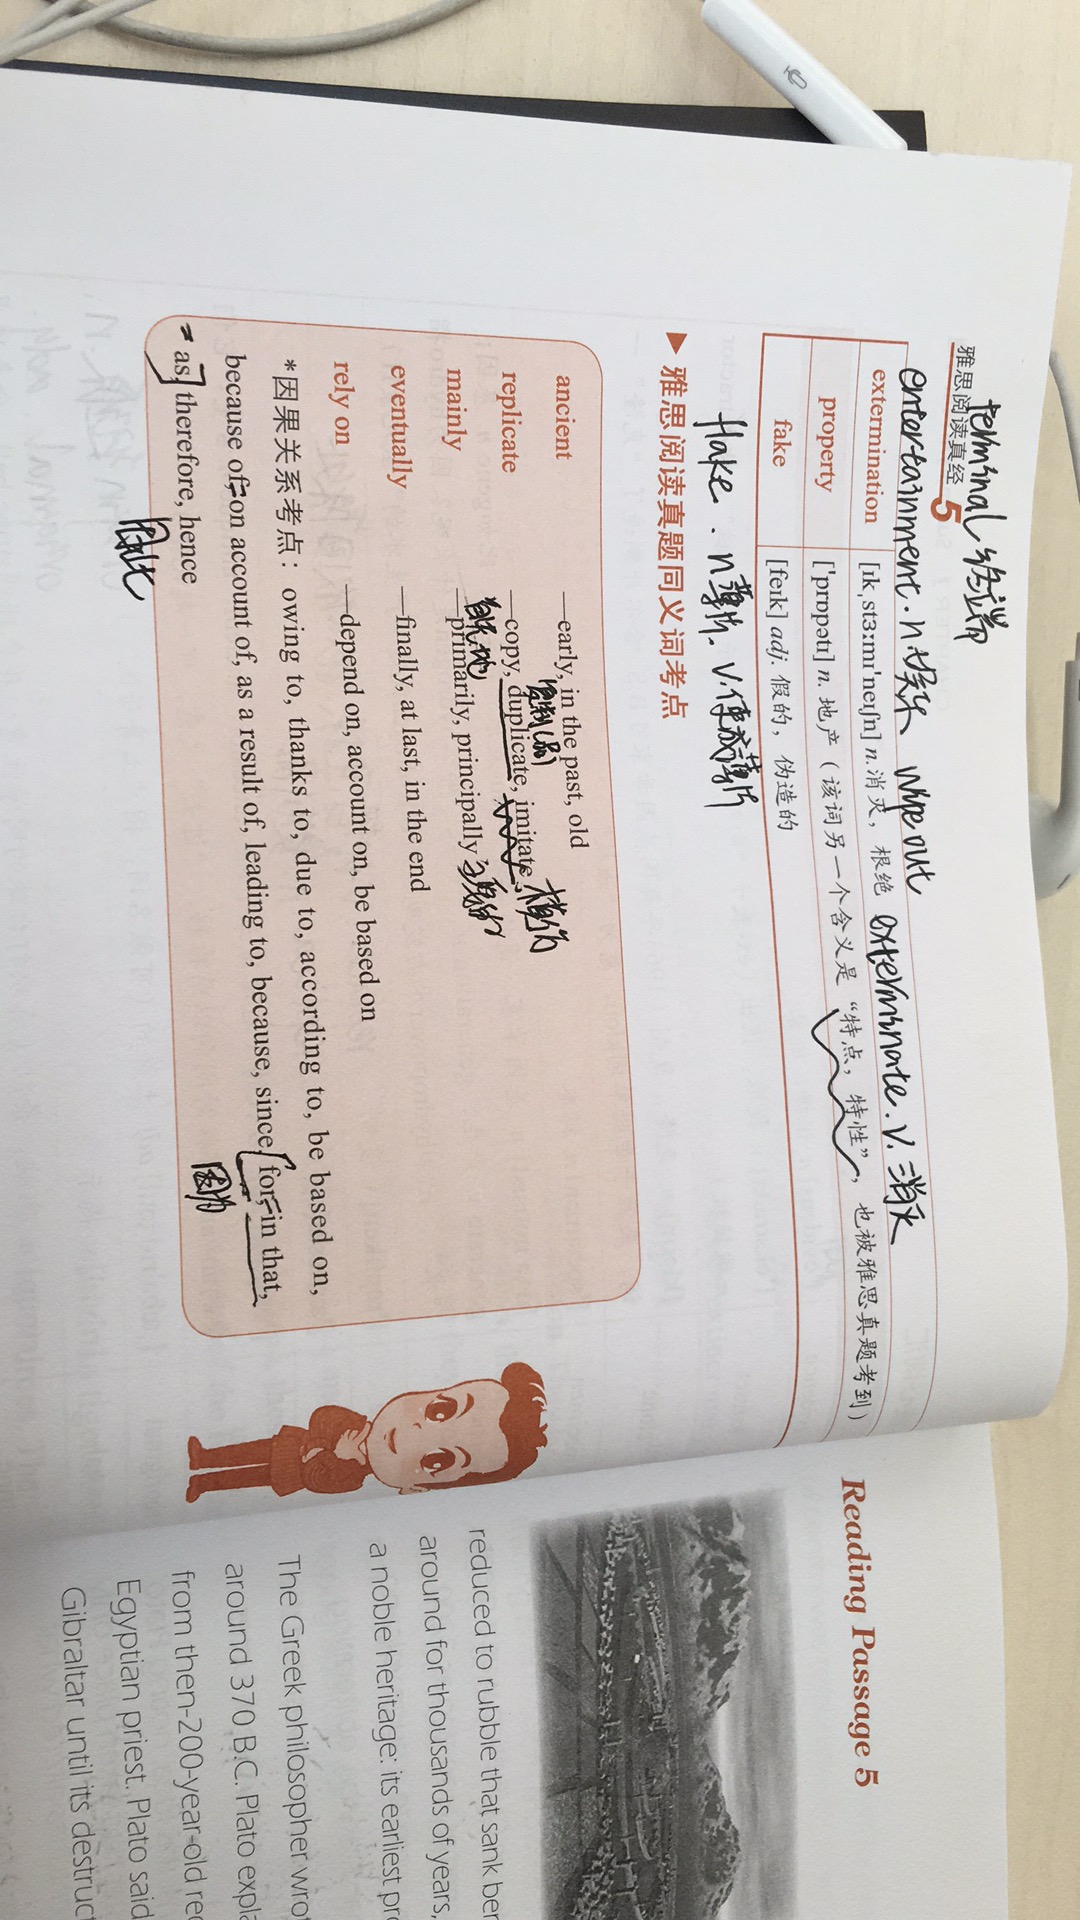 terminal 终端
雅思阅读真经5
entertainment. n 娱乐 wipe out exterminate. v. 消灭
extermination [ɪkˌstɜːmɪˈneɪʃn] n. 消灭，根绝
property [ˈprɒpətɪ] n. 地产（该词另一个含义是“特点，特性”，也被雅思真题考到）
fake [feɪk] adj. 假的，伪造的
flake. n 薄片. v. 使成薄片
▶ 雅思阅读真题同义词考点
ancient —early, in the past, old
复制(品)
replicate —copy, duplicate, imitate 模仿
mainly —primarily, principally
eventually —finally, at last, in the end
rely on —depend on, account on, be based on
*因果关系考点：owing to, thanks to, due to, according to, be based on,
because of, on account of, as a result of, leading to, because, since, for, in that,
因为
as, therefore, hence
因此
Reading Passage 5
reduced to rubble that sank ber
around for thousands of years,
a noble heritage: its earliest pr
The Greek philosopher wrot
around 370 B.C. Plato expla
from then-200-year-old rec
Egyptian priest. Plato said
Gibraltar until its destruct